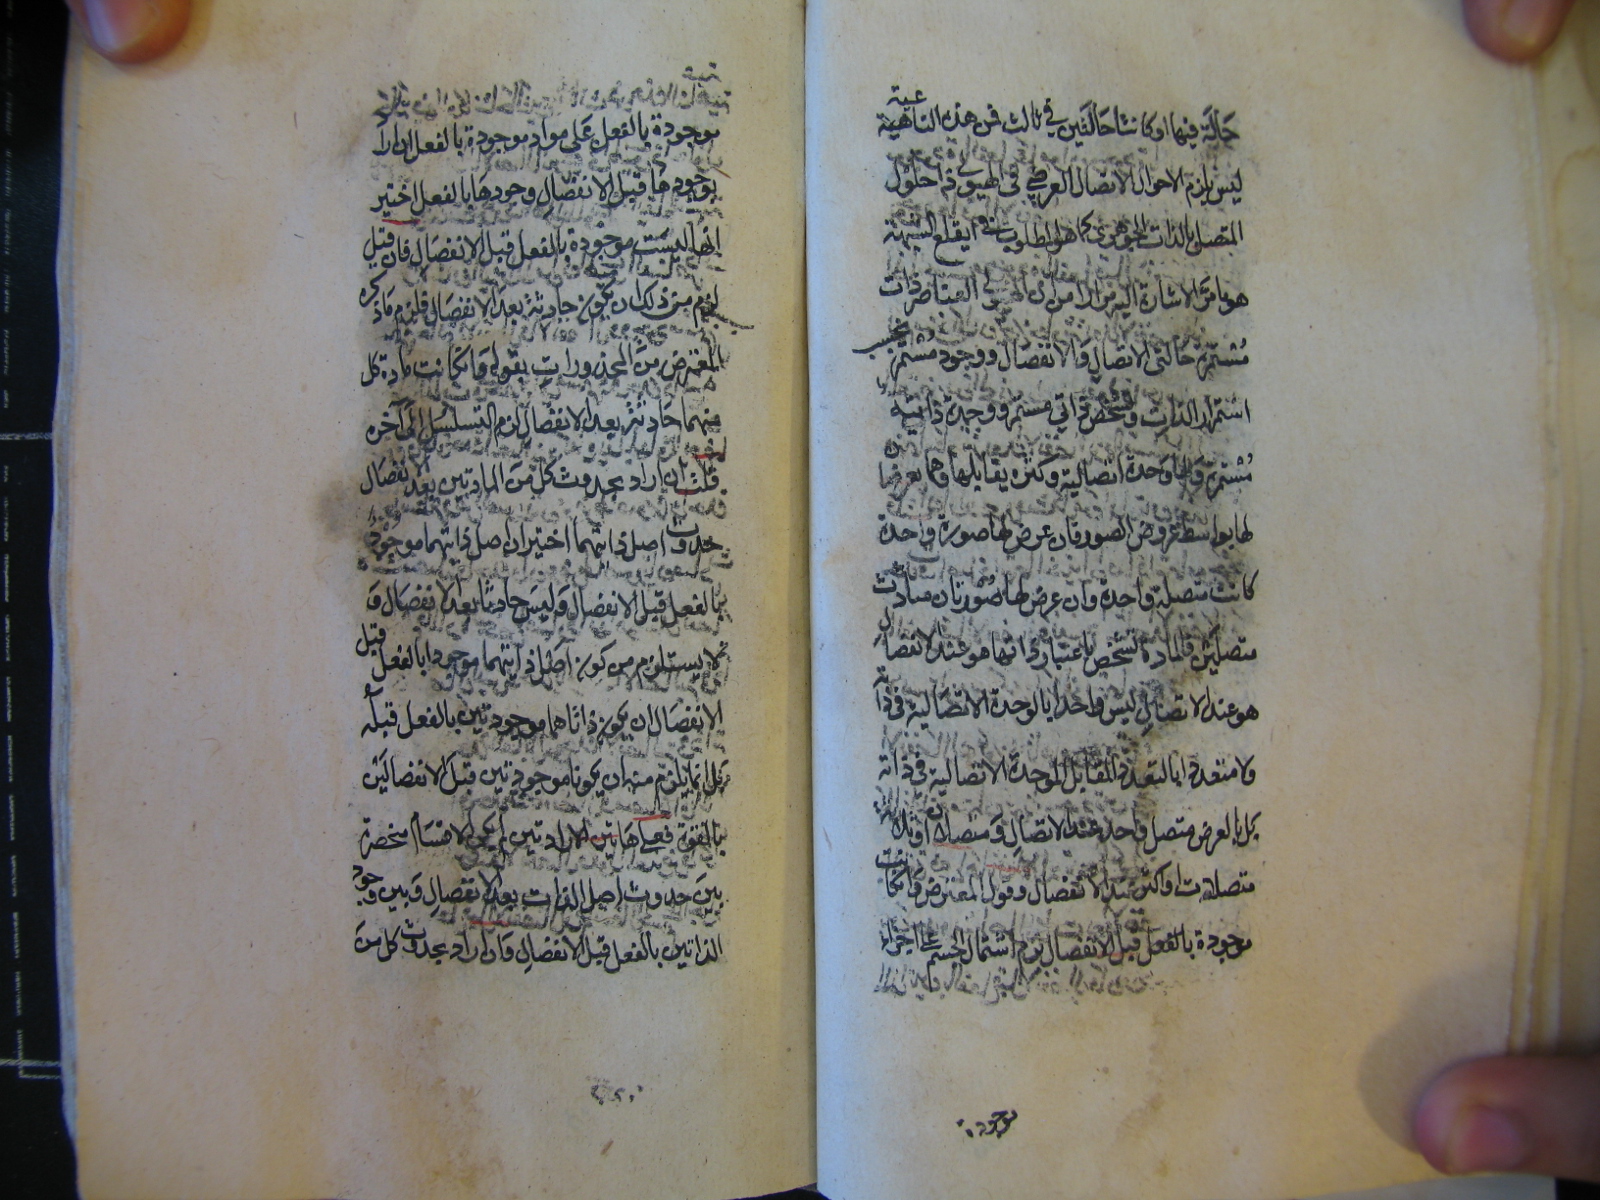 حالة فيها او كانتا حالتين في ثالث فن هذه الناهية
ليس يلزم الاحوال الاتصال العرضي في الهيولى ذا حلول
المتصل بالذات الجوهري كما هو المطلوب ينقلع الشبهة
هو ما مر الاشارة اليه مرارا من ان الهيولى العناصر ذات
مستمرة حالتي الاتصال والانفصال ووجود مستمر
استمرار الذات وتشخص ذاتي مستمر ووحدة ذاتية
مستمرة ولها وحدة اتصالية وكثرة يقابلها وهما يعرضا
لها بواسطة عروض الصور فان عرض لها صورة واحدة
كانت متصلة واحدة وان عرض لها صورتان صارت
متصلتين فالمادة تشخص باعتبار ذاتها هو عند الانفصال
هو عند الاتصال ليس واحدا بالوحدة الاتصالية في ذاته
ولا متعددا بالتعدد المقابل للوحدة الاتصالية في ذاته
بل بالعرض متصل واحد عند الاتصال ومتصلان او ثلاث
متصلات او اكثر عند الانفصال وقول المعترض فان كانت
موجودة بالفعل قبل الانفصال لزم اشتمال الجسم على اجزاء
موجودة
موجودة بالفعل على مواد موجودة بالفعل ان اراد
بوجودها قبل الانفصال وجودها بالفعل اختير
انها ليست موجودة بالفعل قبل الانفصال فان قيل
لزم من ذلك ان يكون حادثة بعد الانفصال فلزم ما ذكره
المعترض من المحذورات بقوله وان كانت مادة كل
منهما حادثة بعد الانفصال لزم التسلسل الى آخره
قلت ان اراد بحدوث كل من المادتين بعد الانفصال
حدوث اصل ذاتيهما اختير ان اصل ذاتيهما موجود
بالفعل قبل الانفصال وليس حادثا بعد الانفصال و
لا يستلزم من كون اصل ذاتيهما موجودا بالفعل قبل
الانفصال ان يكون ذاتاهما موجودتين بالفعل قبله
بل انما يلزم منه ان يكونا موجودتين قبل الانفصالين
بالقوة فعلى هاتين الارادتين لم يكن الاقسام منحصرة
بين حدوث اصل الذات بعد الانفصال وبين وجود
الذاتين بالفعل قبل الانفصال وان اراد بحدوث كل من